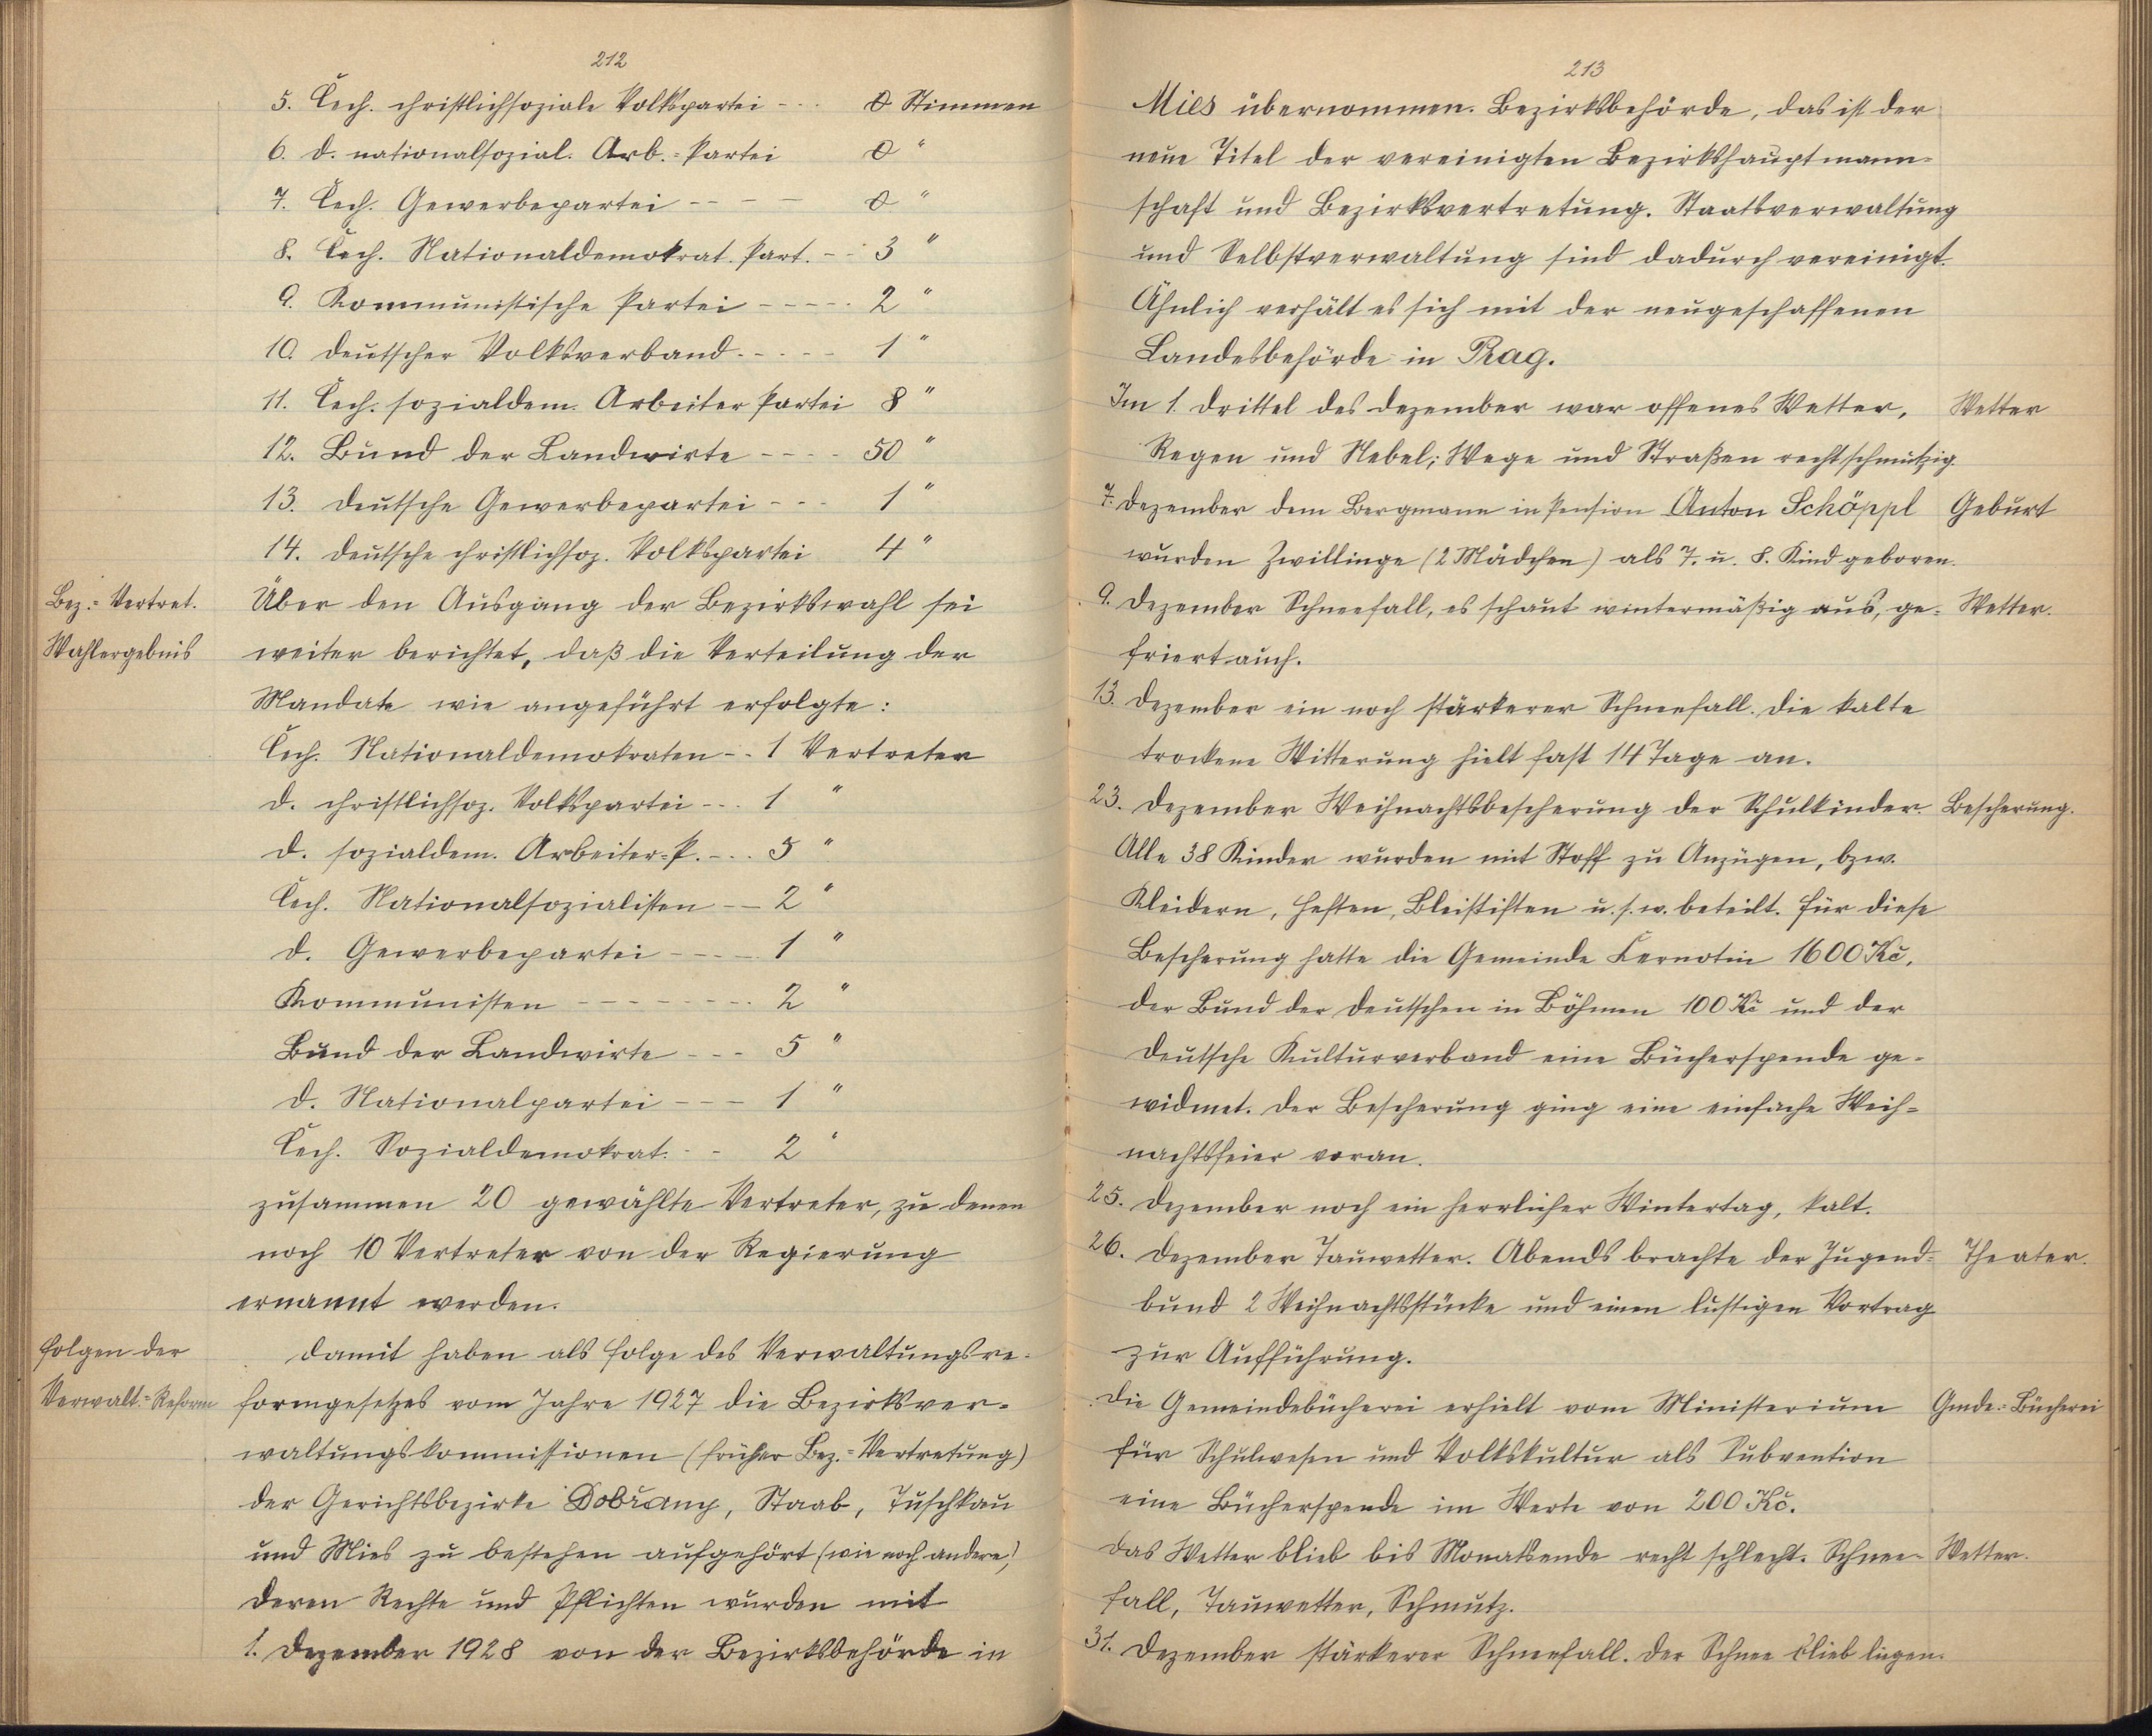 212
5. Čech. christlichsoziale Volkspartei - - - 0 Stimmen
6. d. nationalsozial. Arb.=Partei 0 "
7. Čech. Gewerbepartei - - - - 0 "
8. Čech. Nationaldemokrat. Part. - - 3 "
9. Kommunistische Partei - - - - - 2 "
10. deutscher Volksverband. - - - - 1 "
11. Čech. sozialdem. Arbeiter Partei 8 "
12. Bund der Landwirte - - - - 50 "
13. Deutsche Gewerbepartei - - - 1 "
14. Deutsche christlichsoz. Volkspartei 4 "
Bez.=Vertret. Über den Ausgang der Bezirkswahl sei
Wahlergebnis weiter berichtet, daß die Verteilung der
Mandate wie angeführt erfolgte:
Čech. Nationaldemokraten - - 1 Vertreter
d. christlichsoz. Volkspartei - - - 1 "
d. sozialdem. Arbeiter=P. - - - 5 "
Čech. Nationalsozialisten - - 2 "
d. Gewerbepartei - - - - 1 "
Kommunisten - - - - - - - 2 "
Bund der Landwirte - - - 5 "
d. Nationalpartei - - - 1 "
Čech. Sozialdemokrat. - - 2 "
zusammen 20 gewählte Vertreter, zu denen
noch 10 Vertreter von der Regierung
ernannt werden.
Folgen der Damit haben als Folge des Verwaltungsre-
Verwalt.=Reform formgesetzes vom Jahre 1927 die Bezirksver-
waltungskommissionen (früher Bez.=Vertretung)
der Gerichtsbezirke Dobřany, Staab, Tuschkau
und Mies zu bestehen aufgehört (wie noch andere,)
deren Rechte und Pflichten wurden mit
1. Dezember 1928 von der Bezirksbehörde in
213
Mies übernommen. Bezirksbehörde, das ist der
neue Titel der vereinigten Bezirkshauptmann-
schaft und Bezirksvertretung. Staatsverwaltung
und Selbstverwaltung sind dadurch vereinigt.
Ähnlich verhält es sich mit der neugeschaffenen
Landesbehörde in Prag.
Im 1. Drittel des Dezember war offenes Wetter, Wetter
Regen und Nebel; Wege und Straßen recht schmutzig.
7. Dezember dem Bergmann in Pension Anton Schöppl Geburt
wurden Zwillinge (2 Mädchen) als 7. u. 8. Kind geboren.
9. Dezember Schneefall, es schaut wintermäßig aus, ge- Wetter.
friert auch.
13. Dezember ein noch stärkerer Schneefall. Die kalte
trockene Witterung hielt fast 14 Tage an.
23. Dezember Weihnachtsbescherung der Schulkinder. Bescherung.
Alle 38 Kinder wurden mit Stoff zu Anzügen, bzw.
Kleidern, Heften, Bleistiften u. s. w. beteilt. Für diese
Bescherung hatte die Gemeinde Černotin 1600 Kč,
der Bund der Deutschen in Böhmen 100 Kč und der
Deutsche Kulturverband eine Bücherspende ge-
widmet. Der Bescherung ging eine einfache Weih-
nachtsfeier voran.
25. Dezember noch ein herrlicher Wintertag, kalt.
26. Dezember Tauwetter. Abends brachte der Jugend- Theater.
bund 2 Weihnachtsstücke und einen lustigen Vortrag
zur Aufführung.
Die Gemeindebücherei erhielt vom Ministerium Gmde.=Bücherei
für Schulwesen und Volkskultur als Subvention
eine Bücherspende im Werte von 200 Kč.
Das Wetter blieb bis Monatsende recht schlecht. Schnee- Wetter.
fall, Tauwetter, Schmutz.
31. Dezember stärkerer Schneefall. Der Schnee blieb liegen.